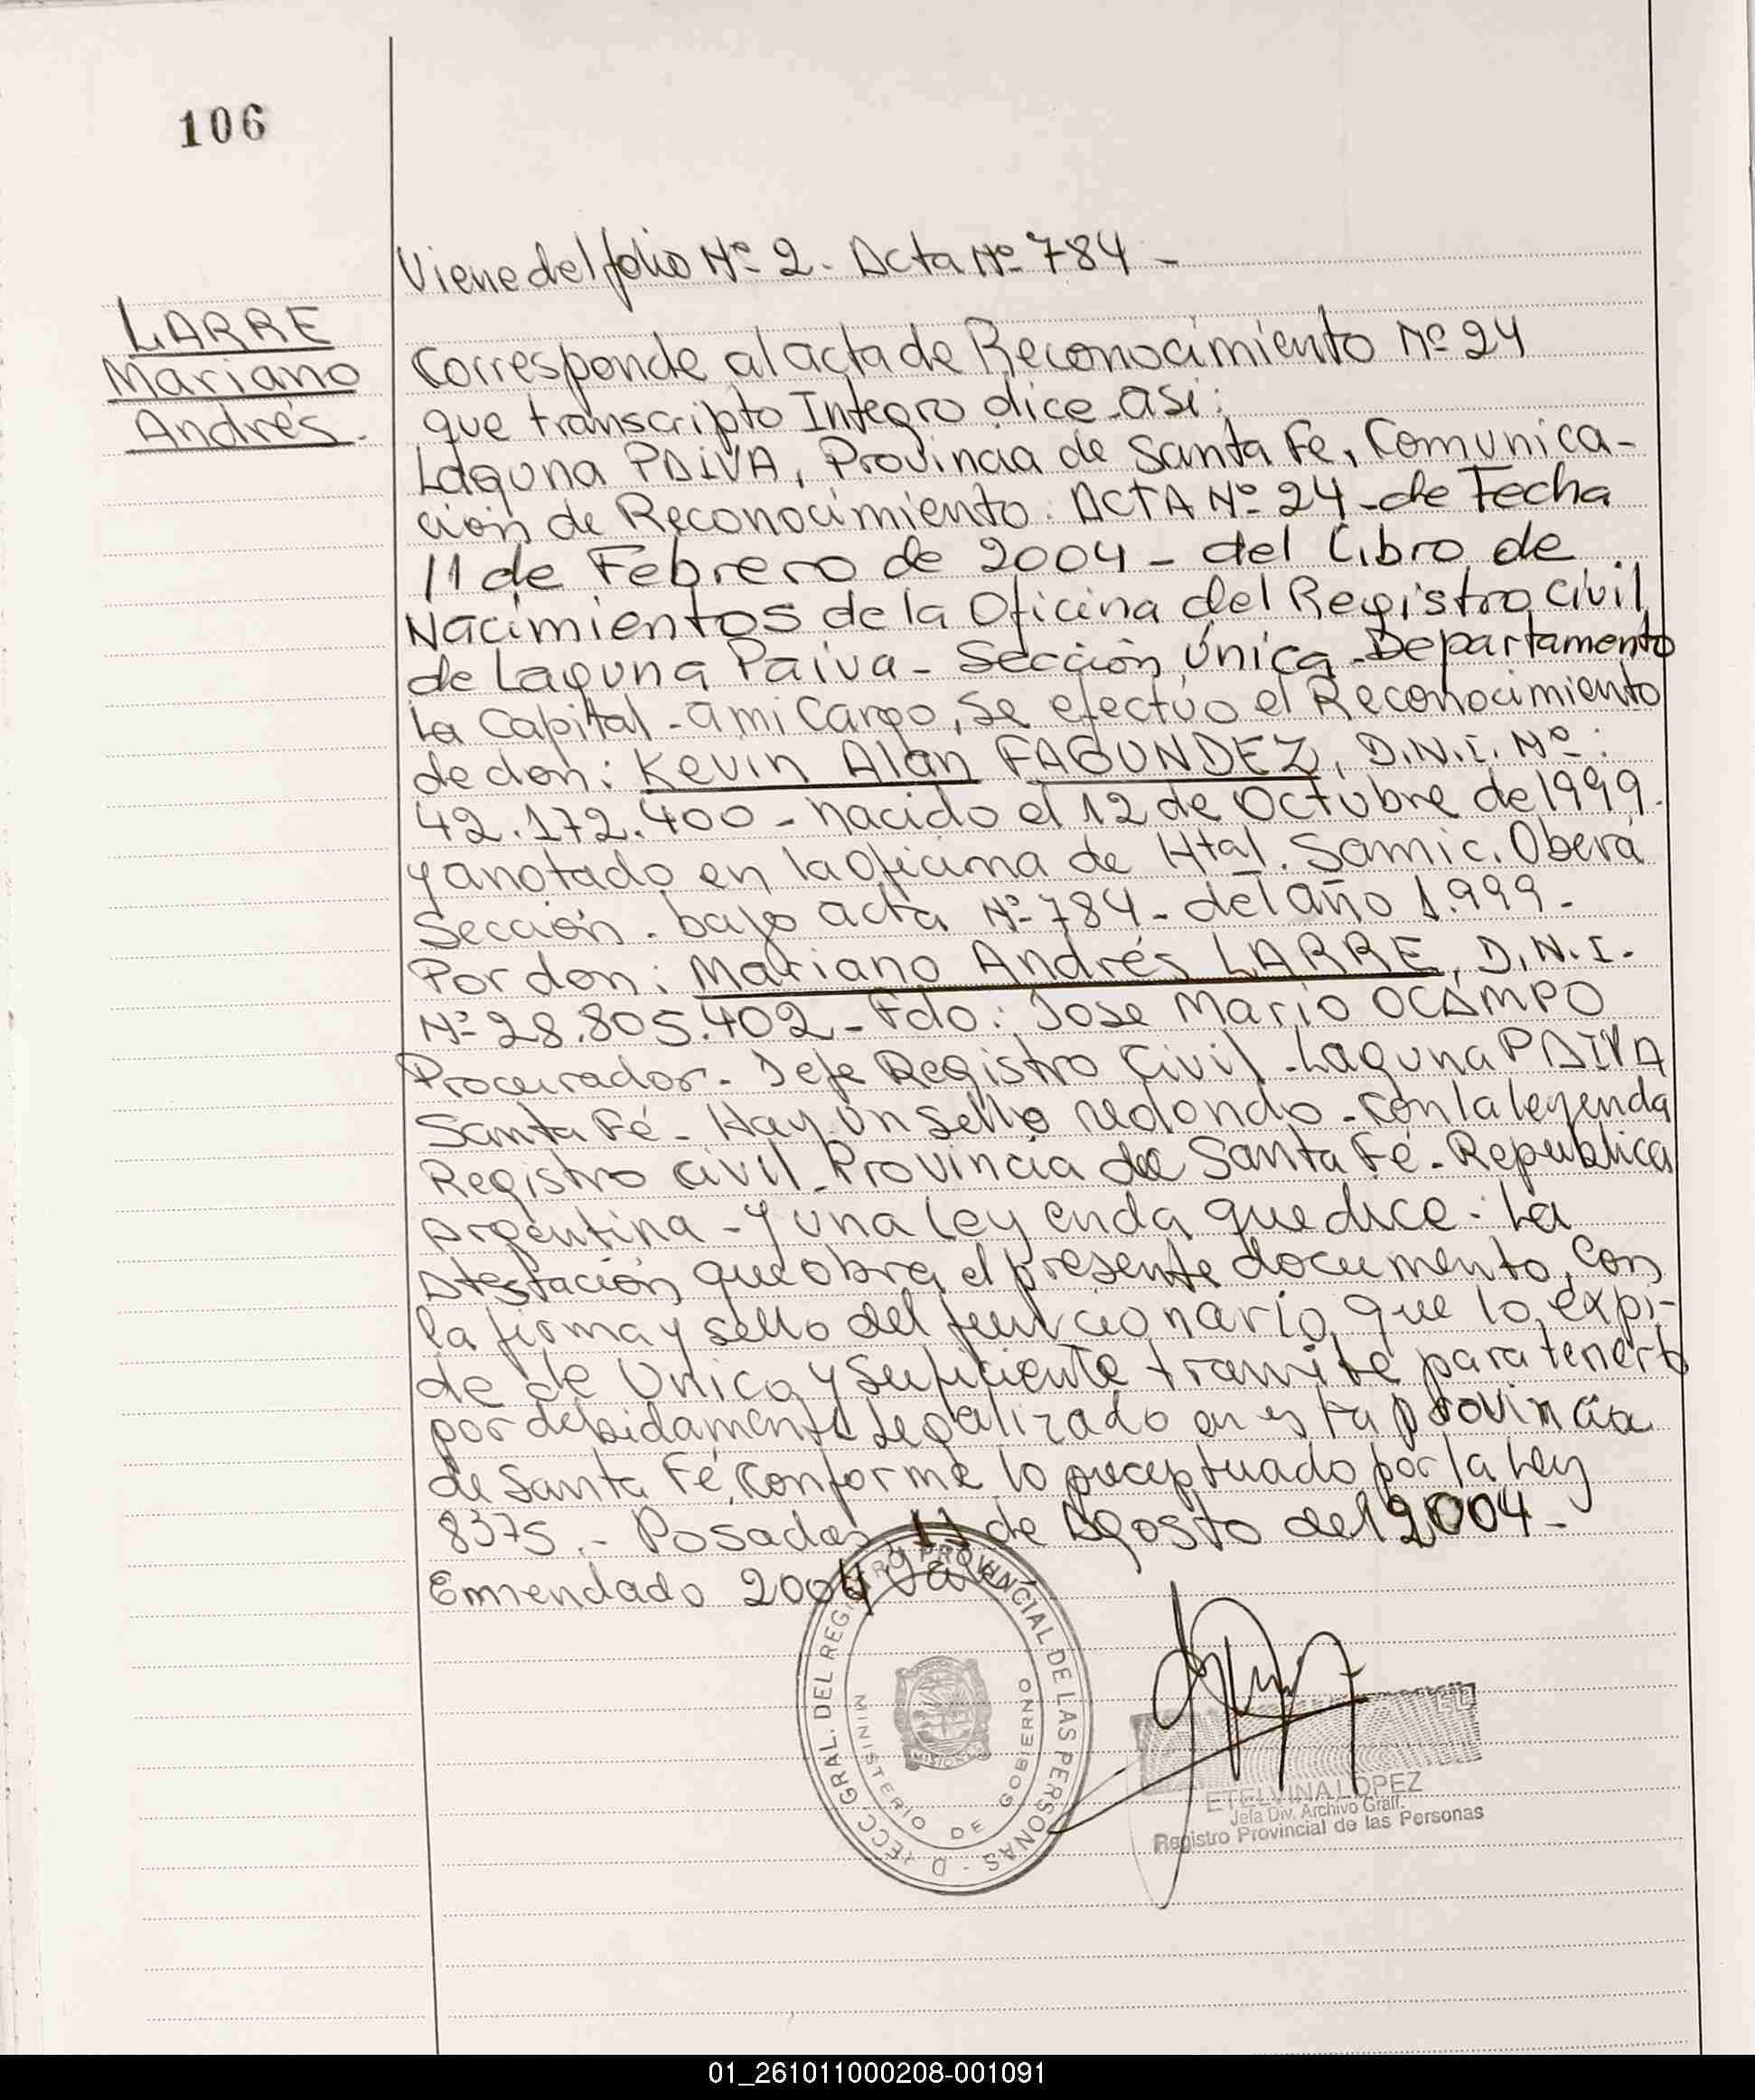 106
Viene del folio Nº 2. Acta Nº 784 -
LARRE
Mariano
Andrés.
Corresponde al acta de Reconocimiento Nº 24
que transcripto Integro dice así:
Laguna PAIVA, Provincia de Santa Fe, Comunica-
ción de Reconocimiento. ACTA Nº 24 - de Fecha
11 de Febrero de 2004 - del Libro de
Nacimientos de la Oficina del Registro Civil
de Laguna Paiva - Sección Única - Departamento
La Capital - a mi Cargo, se efectúo el Reconocimiento
de don: Kevin Alan FAGUNDEZ, D.N.I. Nº:
42.172.400 - nacido el 12 de Octubre de 1999.
y anotado en la Oficina de Htal. Samic. Oberá
Sección. bajo acta Nº 784 - del año 1.999 -
Por don: Mariano Andrés LARRE, D.N.I.
Nº 28.805.402 - Fdo: Jose Mario OCAMPO
Procurador - Jefe Registro Civil - Laguna PAIVA
Santa Fé - Hay un sello redondo - con la leyenda
Registro Civil - Provincia de Santa Fé - Republica
Argentina - y una leyenda que dice: La
Atestación que obra el presente documento, con
la firma y sello del funcionario que lo expi-
de de Unico y suficiente tramite para tenerlo
por debidamente Legalizado en esta provincia
de Santa Fé, Conforme lo preceptuado por la Ley
8375 - Posadas, 11 de Agosto del 2004 -
Enmendado 2004 vale
DIRECC GRAL. DEL REGISTRO PROVINCIAL DE LAS PERSONAS -
MINISTERIO DE GOBIERNO
MISIONES
ETELVINA LOPEZ
Jefa Div. Archivo Graff.
Registro Provincial de las Personas
01_261011000208-001091